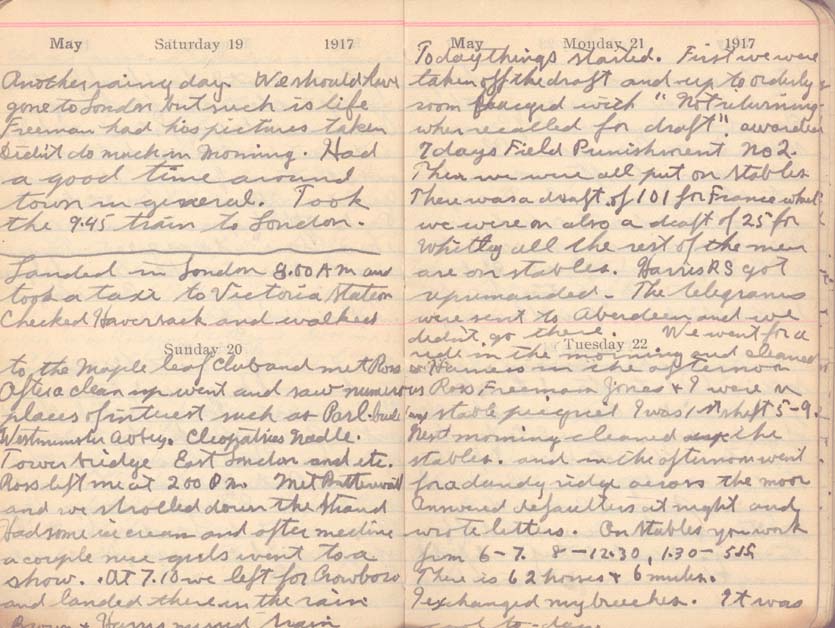 May Saturday 19 1917
Another rainy day. We should have
gone to London but such is life
Freeman had his pictures taken
Didn't do much in morning. Had
a good time around
town in general. Took
the 9.45 train to London.
Landed in London 8.00 A M and
took a taxi to Victoria Station
Checked Haversack and walked
Sunday 20
to the Maple leaf Club and met Ross
After a clean up went and saw numerous
places of interest such as Parl. buildings
Westminster Abbey. Cleopatries Needle.
Tower bridge East London and etc.
Ross left me at 2.00 P.M. Met Butterwait
and we strolled down the Strand
Had some ice cream and after meeting
a couple nice girls went to a
show. At 7.10 we left for Crowboro
and landed there in the rain
& Harris missed train
May Monday 21 1917
Today things started. First we were
taken off the draft and up to orderly
room charged with "Not returning
when recalled for draft". awarded
7 days Field Punishment No 2.
Then we were all put on stables
There was a draft of 101 for France which
we were on also a draft of 25 for
Whitley all the rest of the men
are on stables. Harris RS got
reprimanded - The telegrams
were sent to Aberdeen and we
didn't go there. We went for a
Tuesday 22
ride in the morning and cleaned
Harness in the afternoon
Ross Freeman Jones & I were on
stable picquet I was 1st shift 5-9.
Next morning cleaned the
stables. and in the afternoon went
for a dandy ridge across the moor
Answered defaulters at night and
wrote letters. On Stables you work
from 6-7. 8-12.30, 1.30-5.15
There is 62 horses & 6 mules.
I exchanged my breeches. It was
to-day.